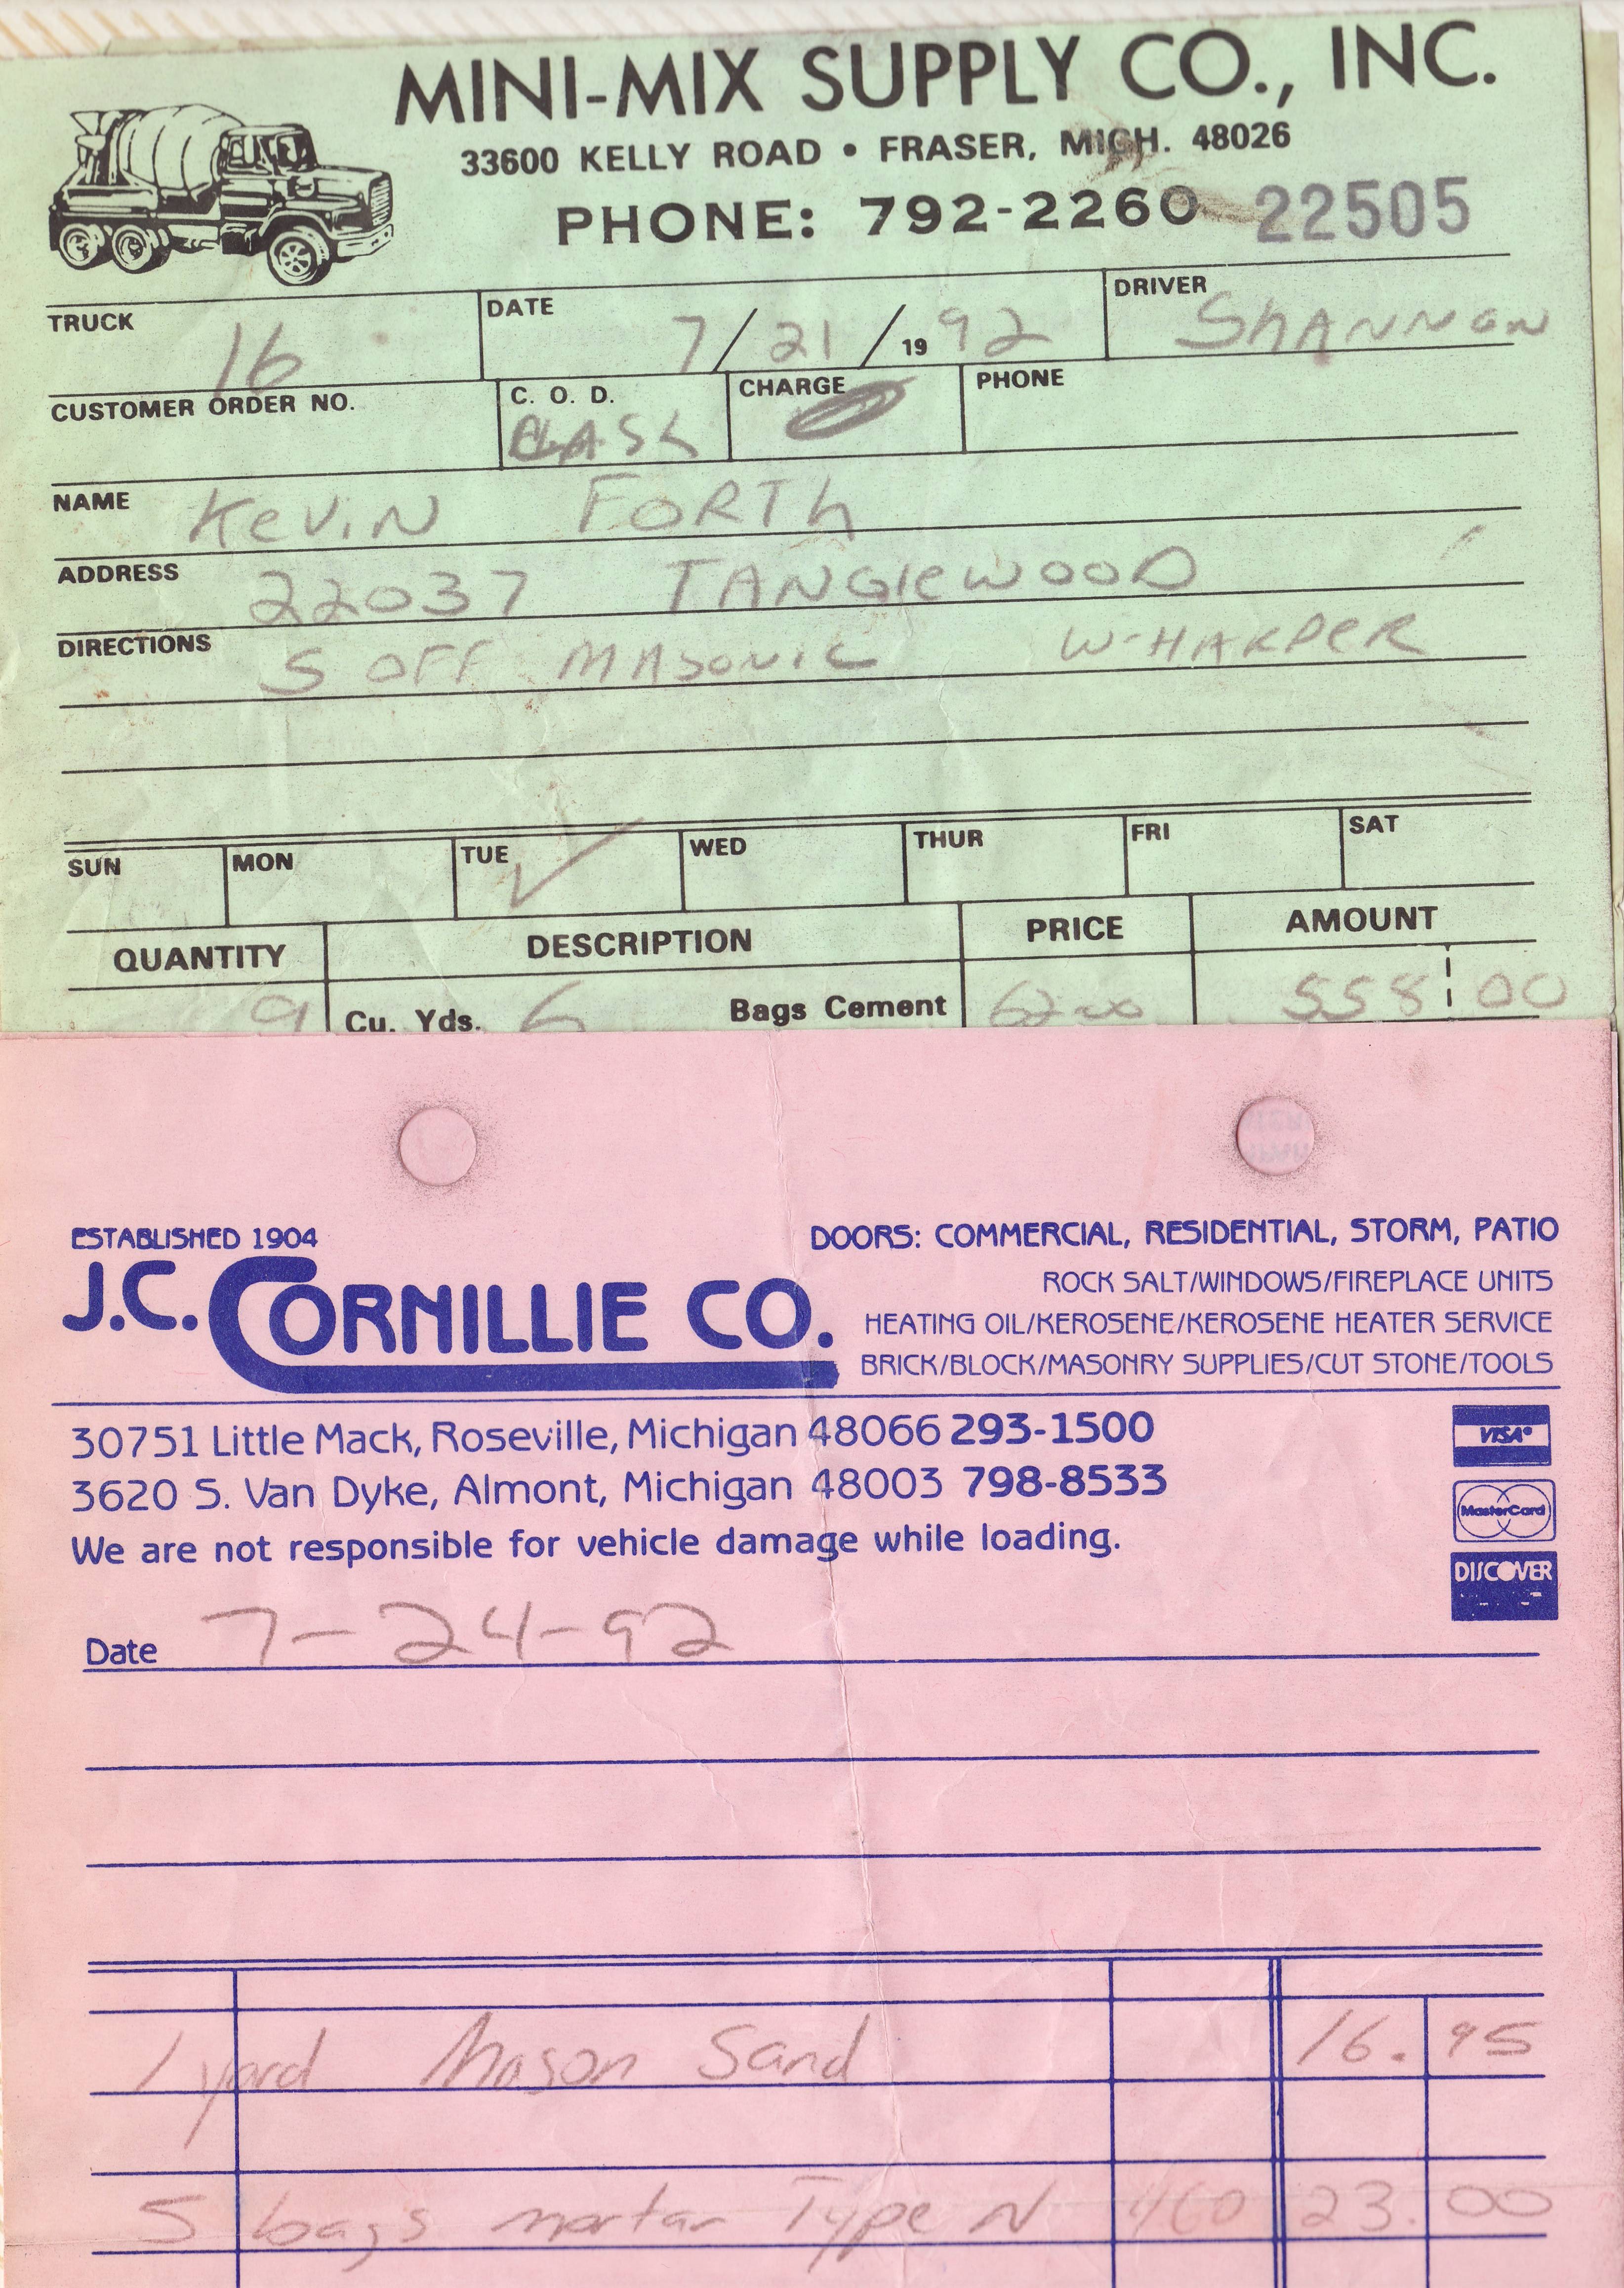 MINI-MIX SUPPLY CO., INC.
33600 KELLY ROAD • FRASER, MICH. 48026
PHONE: 792-2260 22505
TRUCK 16 DATE 7/21/1992 DRIVER SHANNON
CUSTOMER ORDER NO. C. O. D. CASh CHARGE PHONE
NAME KeViN FORTh
ADDRESS 22037 TANGleWOOD
DIRECTIONS S OFF MASONIC W-HARPER
SUN MON TUE ✓ WED THUR FRI SAT
QUANTITY DESCRIPTION PRICE AMOUNT
9 Cu. Yds. 6 Bags Cement 62 00 558 00
ESTABLISHED 1904
J.C. CORNILLIE CO.
DOORS: COMMERCIAL, RESIDENTIAL, STORM, PATIO
ROCK SALT/WINDOWS/FIREPLACE UNITS
HEATING OIL/KEROSENE/KEROSENE HEATER SERVICE
BRICK/BLOCK/MASONRY SUPPLIES/CUT STONE/TOOLS
30751 Little Mack, Roseville, Michigan 48066 293-1500
3620 S. Van Dyke, Almont, Michigan 48003 798-8533
We are not responsible for vehicle damage while loading.
VISA
MasterCard
DISCOVER
Date 7-24-92
1 yard Mason Sand 16.95
5 bags mortar Type N 460 23.00